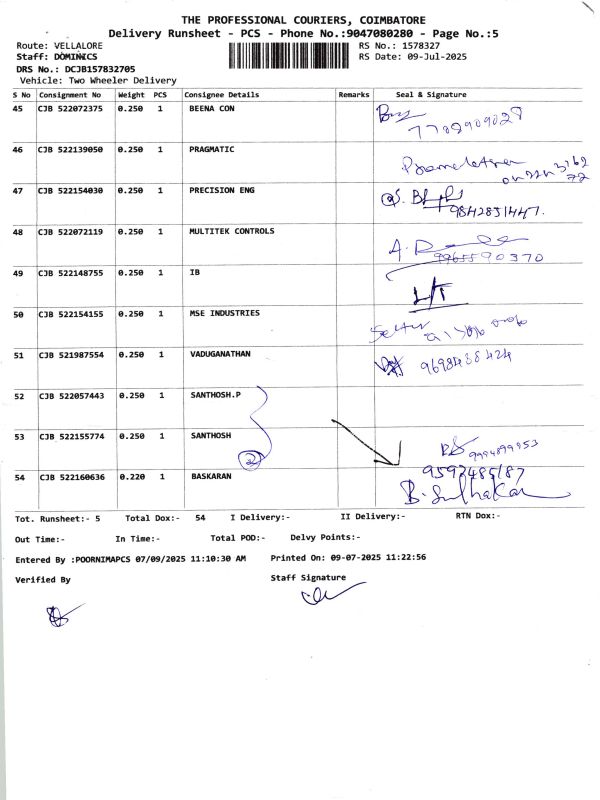 THE PROFESSIONAL COURIERS, COIMBATORE
Delivery Runsheet - PCS - Phone No.:9047080280 - Page No.:5
Route: VELLALORE RS No.: 1578327
Staff: DOMINICS RS Date: 09-Jul-2025
DRS No.: DCJB157832705
Vehicle: Two Wheeler Delivery
S No Consignment No Weight PCS Consignee Details Remarks Seal & Signature
45 CJB 522072375 0.250 1 BEENA CON
7708909028
46 CJB 522139050 0.250 1 PRAGMATIC
47 CJB 522154030 0.250 1 PRECISION ENG
9842851447.
48 CJB 522072119 0.250 1 MULTITEK CONTROLS
9965590370
49 CJB 522148755 0.250 1 IB
50 CJB 522154155 0.250 1 MSE INDUSTRIES
51 CJB 521987554 0.250 1 VADUGANATHAN
9698488424
52 CJB 522057443 0.250 1 SANTHOSH.P
53 CJB 522155774 0.250 1 SANTHOSH
2 9994899953
54 CJB 522160636 0.220 1 BASKARAN 9597485187
B. Sudhakar
Tot. Runsheet:- 5 Total Dox:- 54 I Delivery:- II Delivery:- RTN Dox:-
Out Time:- In Time:- Total POD:- Delvy Points:-
Entered By :POORNIMAPCS 07/09/2025 11:10:30 AM Printed On: 09-07-2025 11:22:56
Verified By Staff Signature